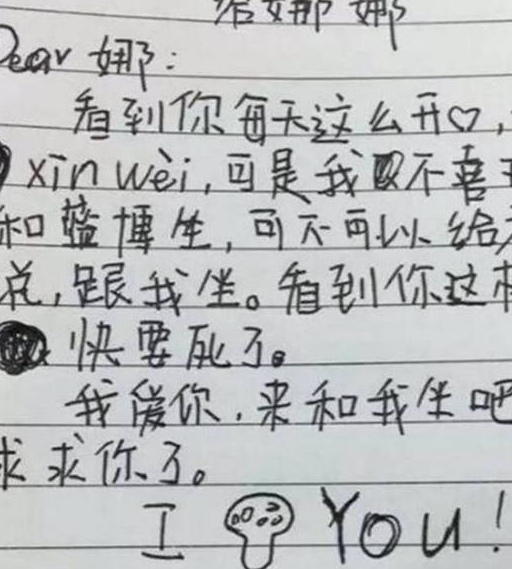 给娜娜
Dear 娜:
看到你每天这么开♡,
xīn wèi,可是我不喜
和蓝博生,可不可以给
说,跟我坐。看到你这
快要死了。
我爱你,来和我坐吧
求求你了。
I You!